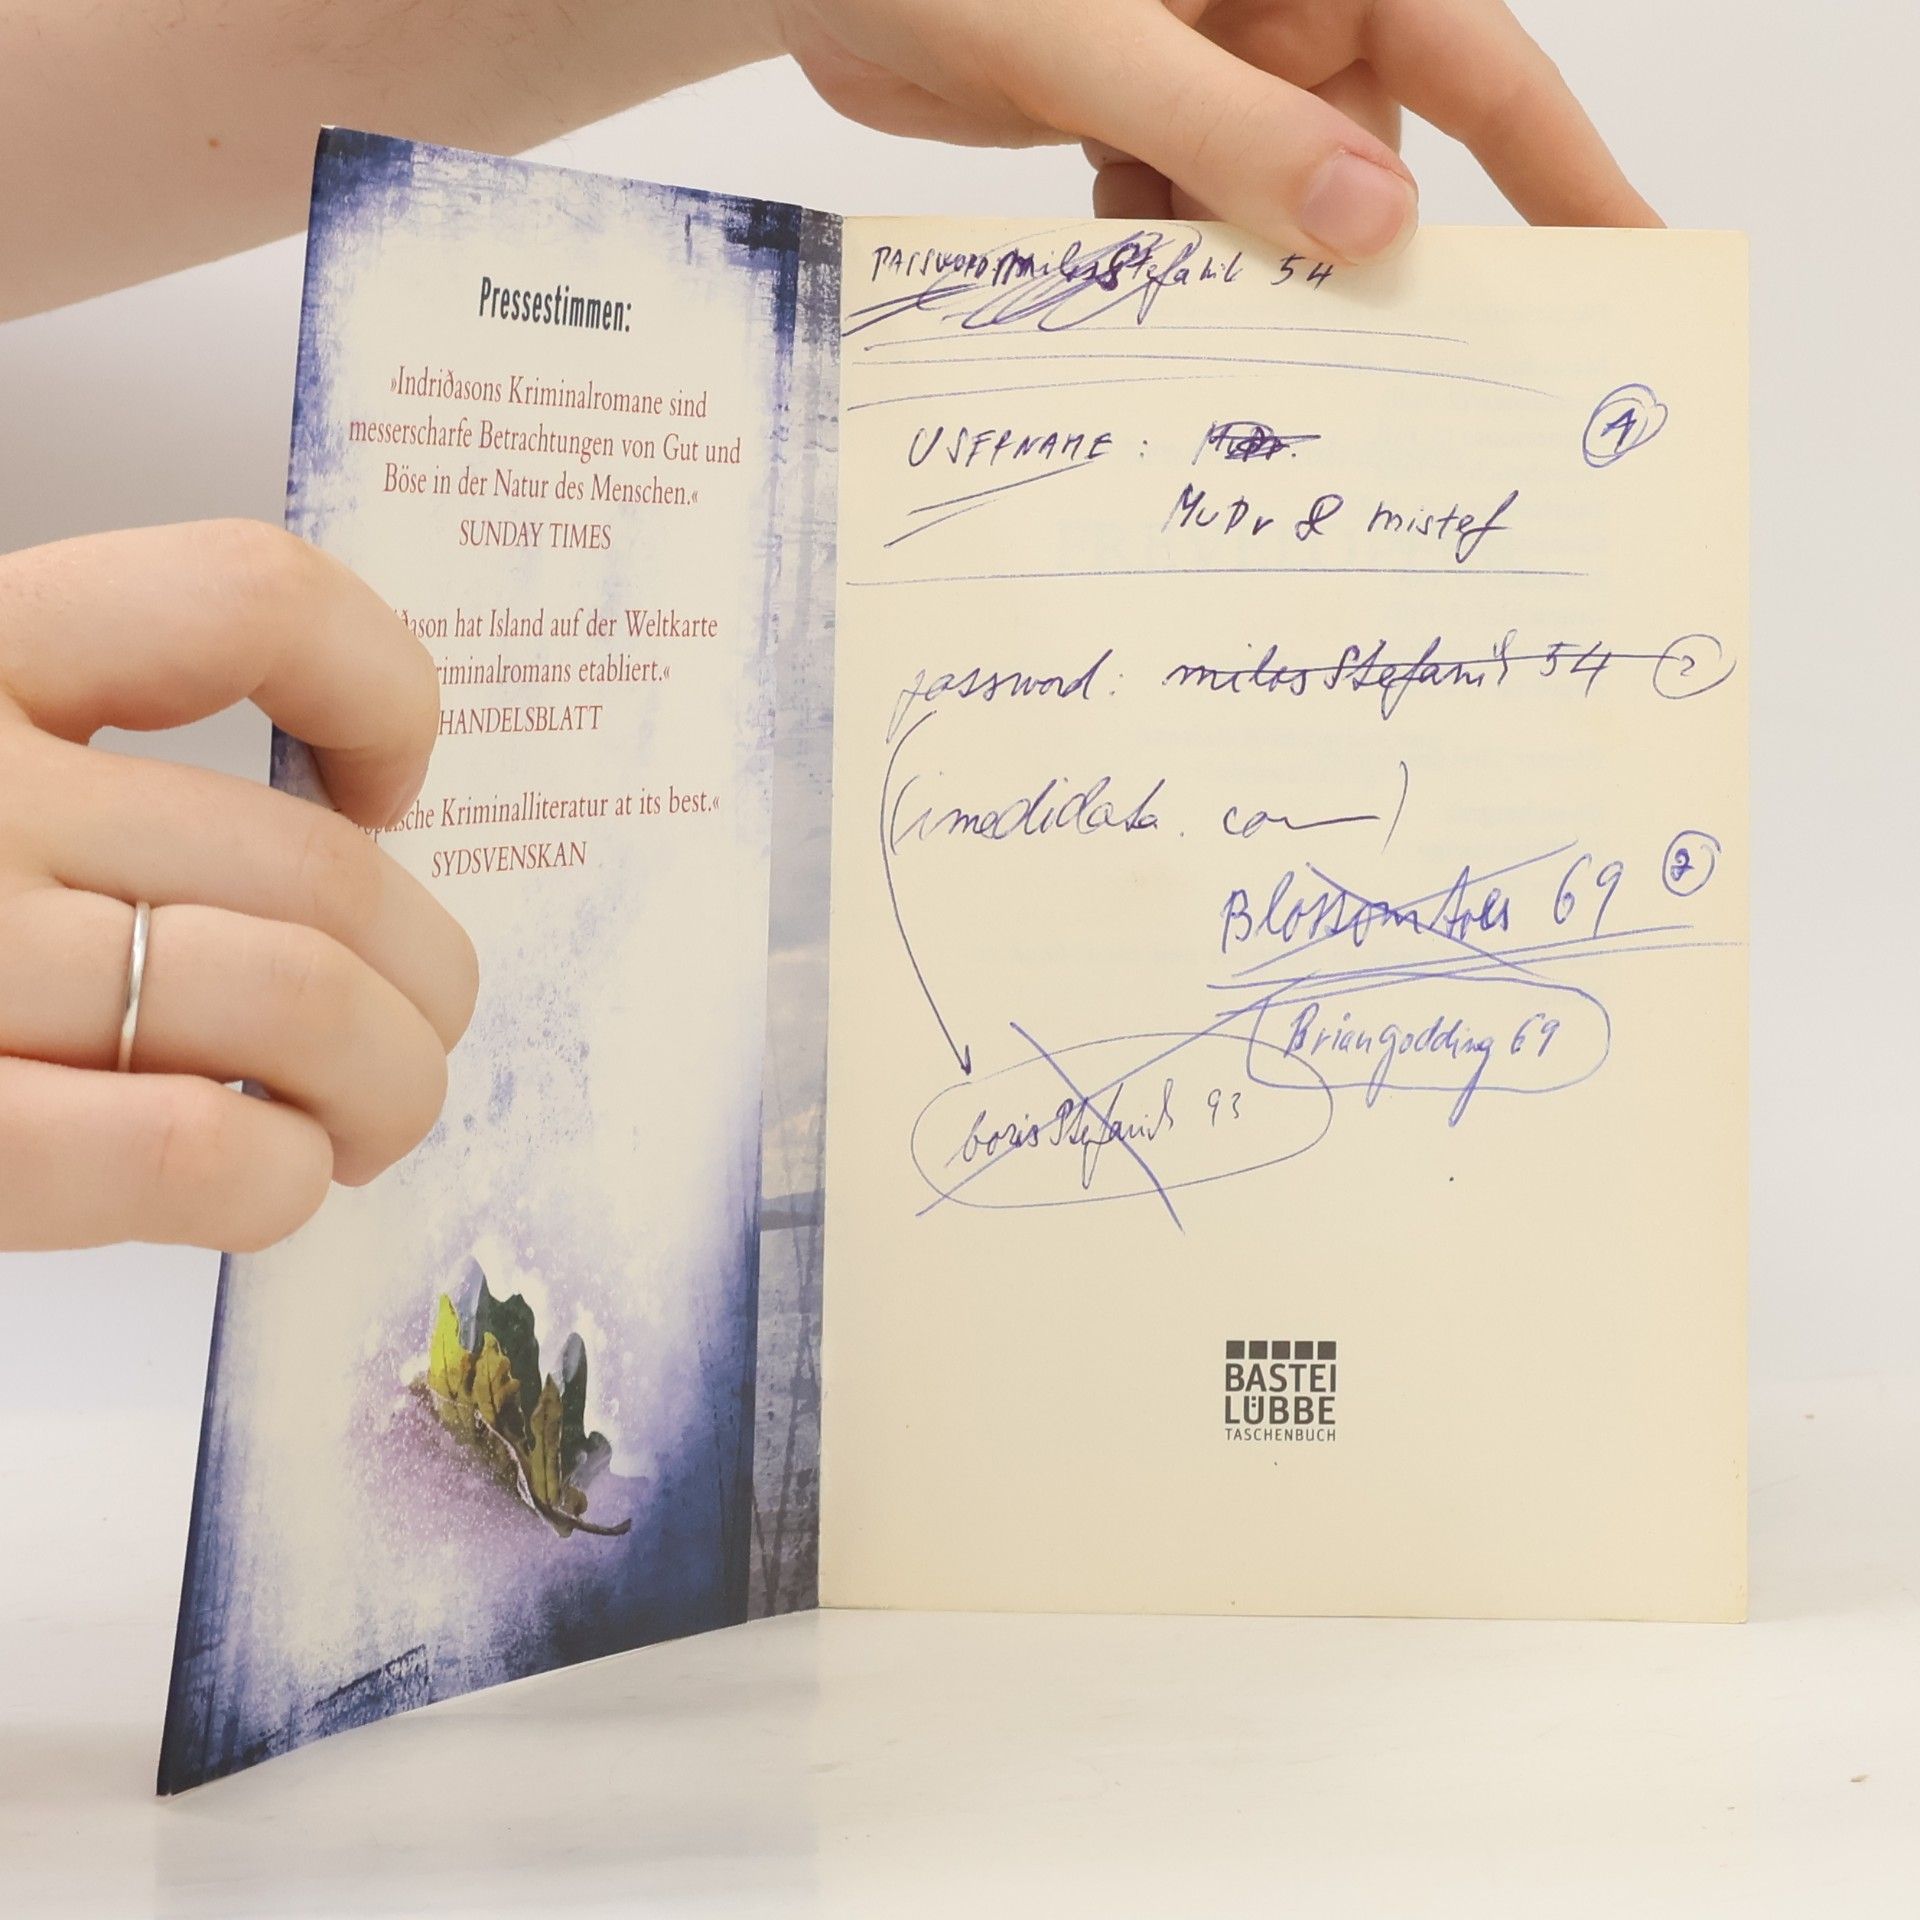 Pressestimmen:
»Indriðasons Kriminalromane sind
messerscharfe Betrachtungen von Gut und
Böse in der Natur des Menschen.«
SUNDAY TIMES
hat Island auf der Weltkarte
etabliert.«
HANDELSBLATT
Kriminalliteratur at its best.«
SYDSVENSKAN
PASSWORD milosStefanik 54
USERNAME :
MuDr & mistef
password: milosStefanik 54 2
(imedidata.com)
Blossomtoes 69 2
Briangodding 69
borisStefanik 93
BASTEI
LÜBBE
TASCHENBUCH